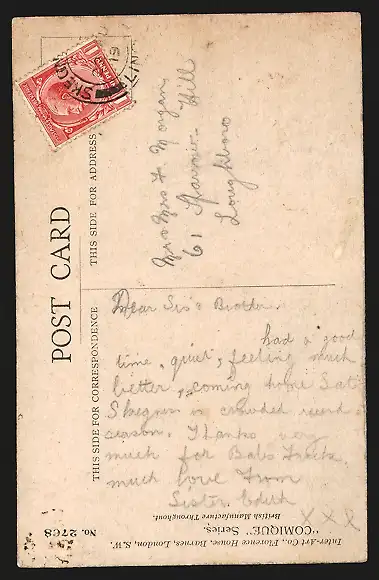 POST CARD
THIS SIDE FOR CORRESPONDENCE
THIS SIDE FOR ADDRESS
SKEG
Mr & Mrs F. Morgan
61 Sparrow Hill
Loughboro
Dear Sis & Brother
had a good
time, quiet, feeling much
better, coming home Sat
Skegness is crowded record
season. Thanks very
much for Babs Frock
much love From
Sister Edith
XXX
Inter-Art Co., Florence House, Barnes, London, S.W.
"COMIQUE" Series.
British Manufacture Throughout.
No. 2768